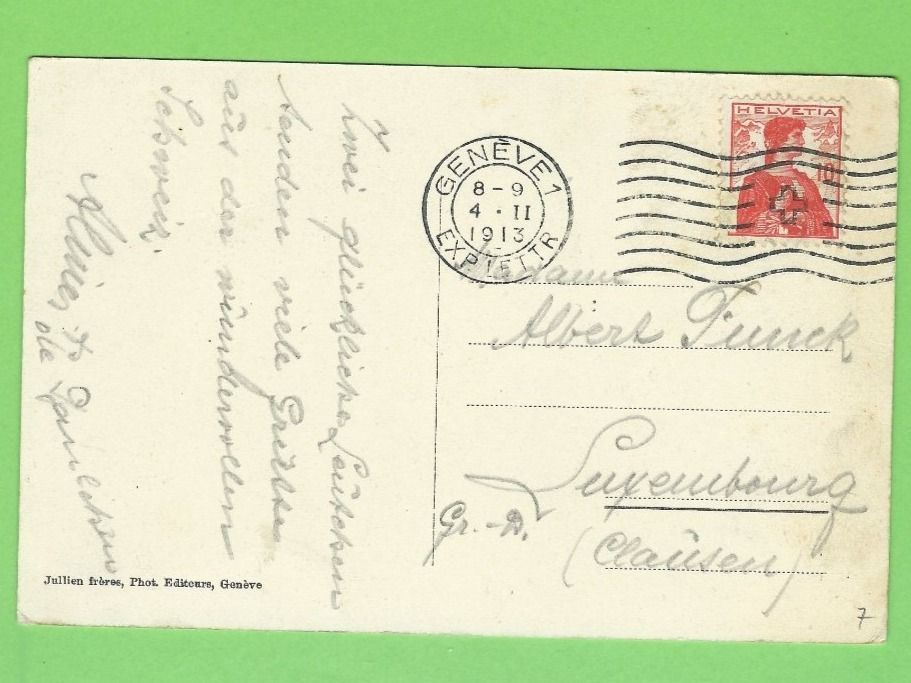 Zwei glückliche Leutchen
senden viele Grüße
aus der wundervollen
Schweiz.
HELVETIA
10
GENÈVE 1
8 - 9
4 · II
1913
EXP. LETTR
Madame
Albert Funck
Luxembourg
Gr.-D.
(Clausen)
Jullien frères, Phot. Editeurs, Genève
7